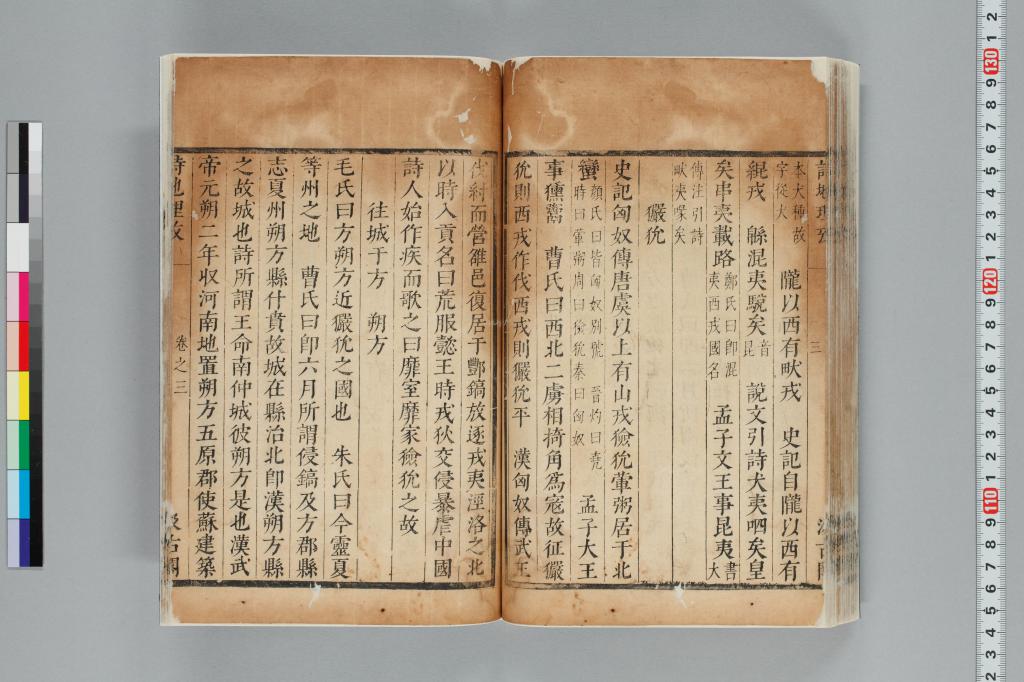 詩地理攷 三
本犬種故
字從犬
隴以西有畎戎 史記自隴以西有
緄戎 緜混夷駾矣 音昆 說文引詩犬夷呬矣皇
矣串夷載路 鄭氏曰卽混夷西戎國名 孟子文王事昆夷 書大
傳注引詩
畎夷喙矣
玁狁
史記匈奴傳唐虞以上有山戎獫狁葷粥居于北
蠻 顏氏曰皆匈奴別號 晉灼曰堯時曰葷粥周曰獫狁秦曰匈奴 孟子大王
事獯鬻 曹氏曰西北二虜相掎角爲寇故征玁
狁則西戎作伐西戎則玁狁平 漢匈奴傳武王
伐紂而營雒邑復居于酆鎬放逐戎夷涇洛之北
以時入貢名曰荒服懿王時戎狄交侵暴虐中國
詩人始作疾而歌之曰靡室靡家獫狁之故
往城于方 朔方
毛氏曰方朔方近玁狁之國也 朱氏曰今靈夏
等州之地 曹氏曰卽六月所謂侵鎬及方郡縣
志夏州朔方縣什賁故城在縣治北卽漢朔方縣
之故城也詩所謂王命南仲城彼朔方是也漢武
帝元朔二年収河南地置朔方五原郡使蘇建築
詩地理攷 卷之三 汲古閣